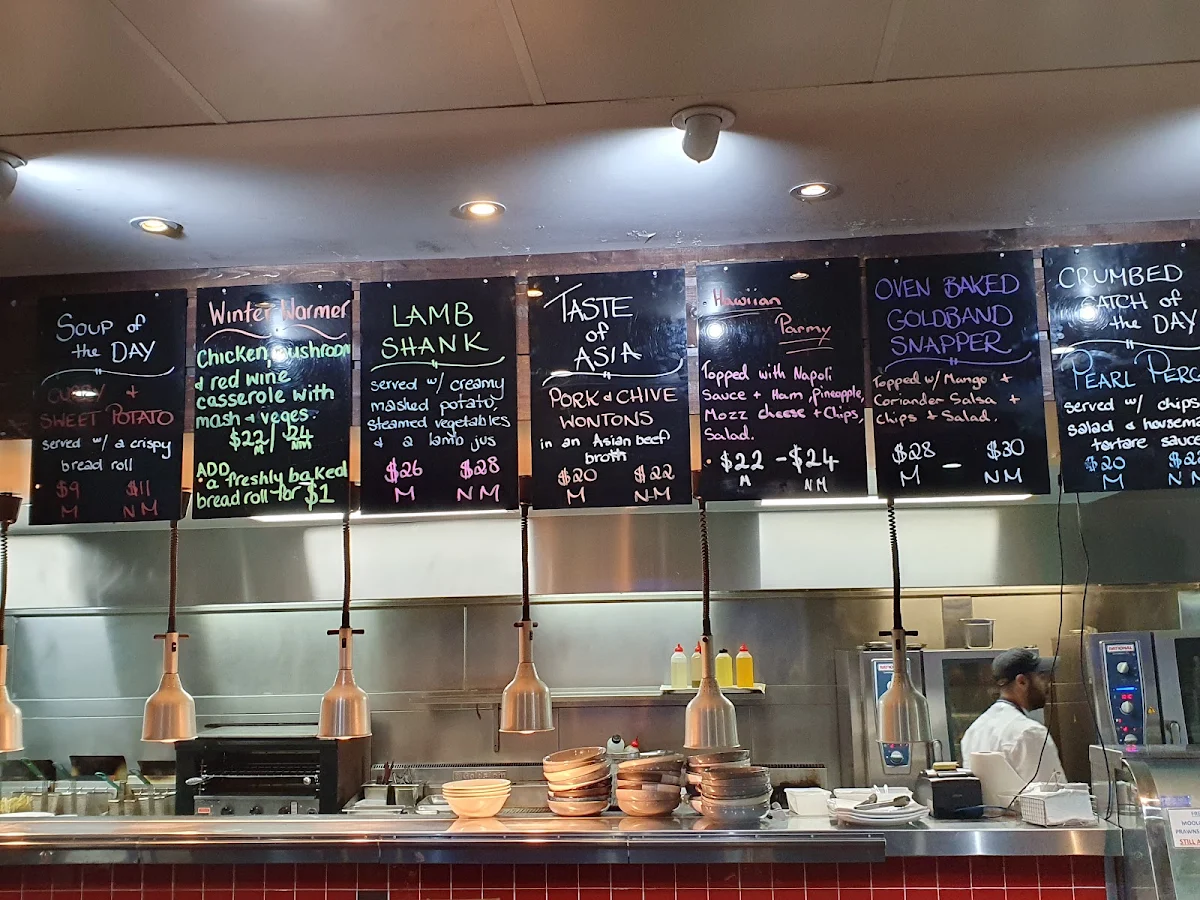 Soup of
the DAY
CURRY +
SWEET POTATO
served w/ a crispy
bread roll
$9 $11
M NM
Winter Warmer
Chicken, mushroom
& red wine
casserole with
mash & veges
$22/ 24
M NM
ADD
a freshly baked
bread roll for $1
LAMB
SHANK
served w/ creamy
mashed potato
steamed vegetables
& a lamb jus
$26 $28
M NM
TASTE
of
ASIA
PORK & CHIVE
WONTONS
in an Asian beef
broth
$20 $22
M NM
Hawiian
Parmy
Topped with Napoli
Sauce + Ham, Pineapple,
Mozz cheese + Chips,
Salad.
$22 - $24
M NM
OVEN BAKED
GOLDBAND
SNAPPER
Topped w/ Mango +
Coriander Salsa +
Chips & Salad.
$28 $30
M NM
CRUMBED
CATCH of
the DAY
PEARL PERC
served w/ chips
salad & housema
tartare sauce
$20 $22
M NM
RATIONAL
RATIONAL
PRAWNS
STILL A